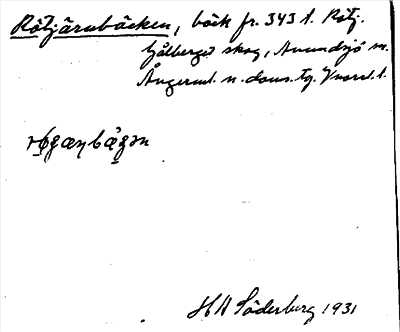 Rötjärnbäcken, bäck fr. 343 t. Rötj.
Gålberget skog, Anundsjö sn.
Ångerml. n. doms. tg. Vnorrl. l.
røgæṇbäg̣ǝn
H A Söderberg 1931